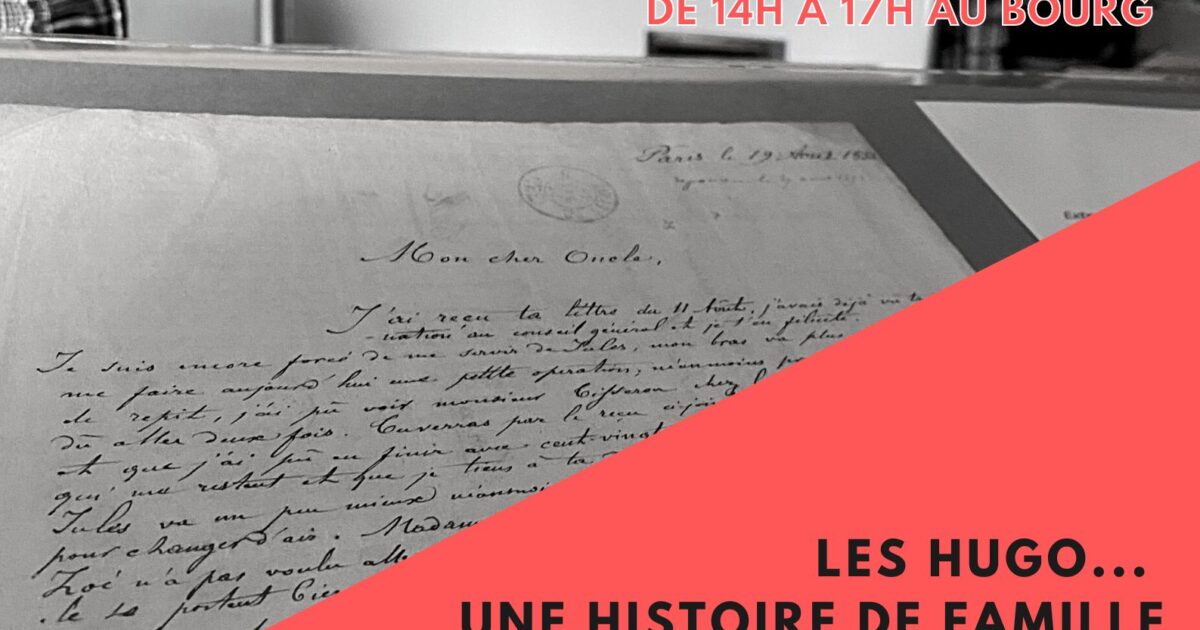 DE 14H À 17H AU BOURG
Paris le 19 Août
Mon cher Oncle,
J'ai reçu ta lettre du 11 Août, j'avais déjà vu ta
-nation au conseil général et je t'en félicite.
Je suis encore forcé de me servir de Jules, mon bras va plus
me faire aujourd'hui une petite opération, néanmoins
de repit, j'ai pû voir monsieur Cisseron chez
dû aller deux fois. Tu verras par le reçu ci-joint
et que j'ai pû en finir avec cent-vingt
qui me restent et que je tiens à ta
Jules va un peu mieux néanmoins
pour changer d'air. Madame
Zoé n'a pas voulu
se portent
LES HUGO...
UNE HISTOIRE DE FAMILLE